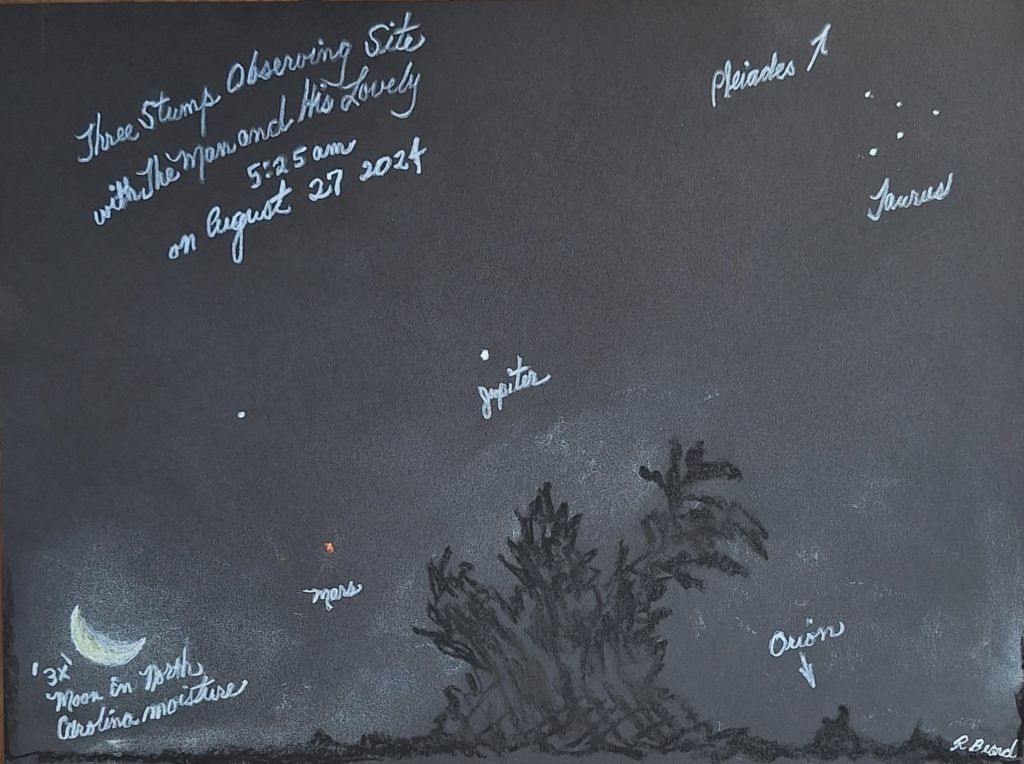 Three Stump Observing Site
with The Man and His Lovely
5:25 am
on August 27 2024
Pleiades ↗
Taurus
Jupiter
Mars
'3x'
Moon in North
Carolina moisture
Orion
↓
R Beard